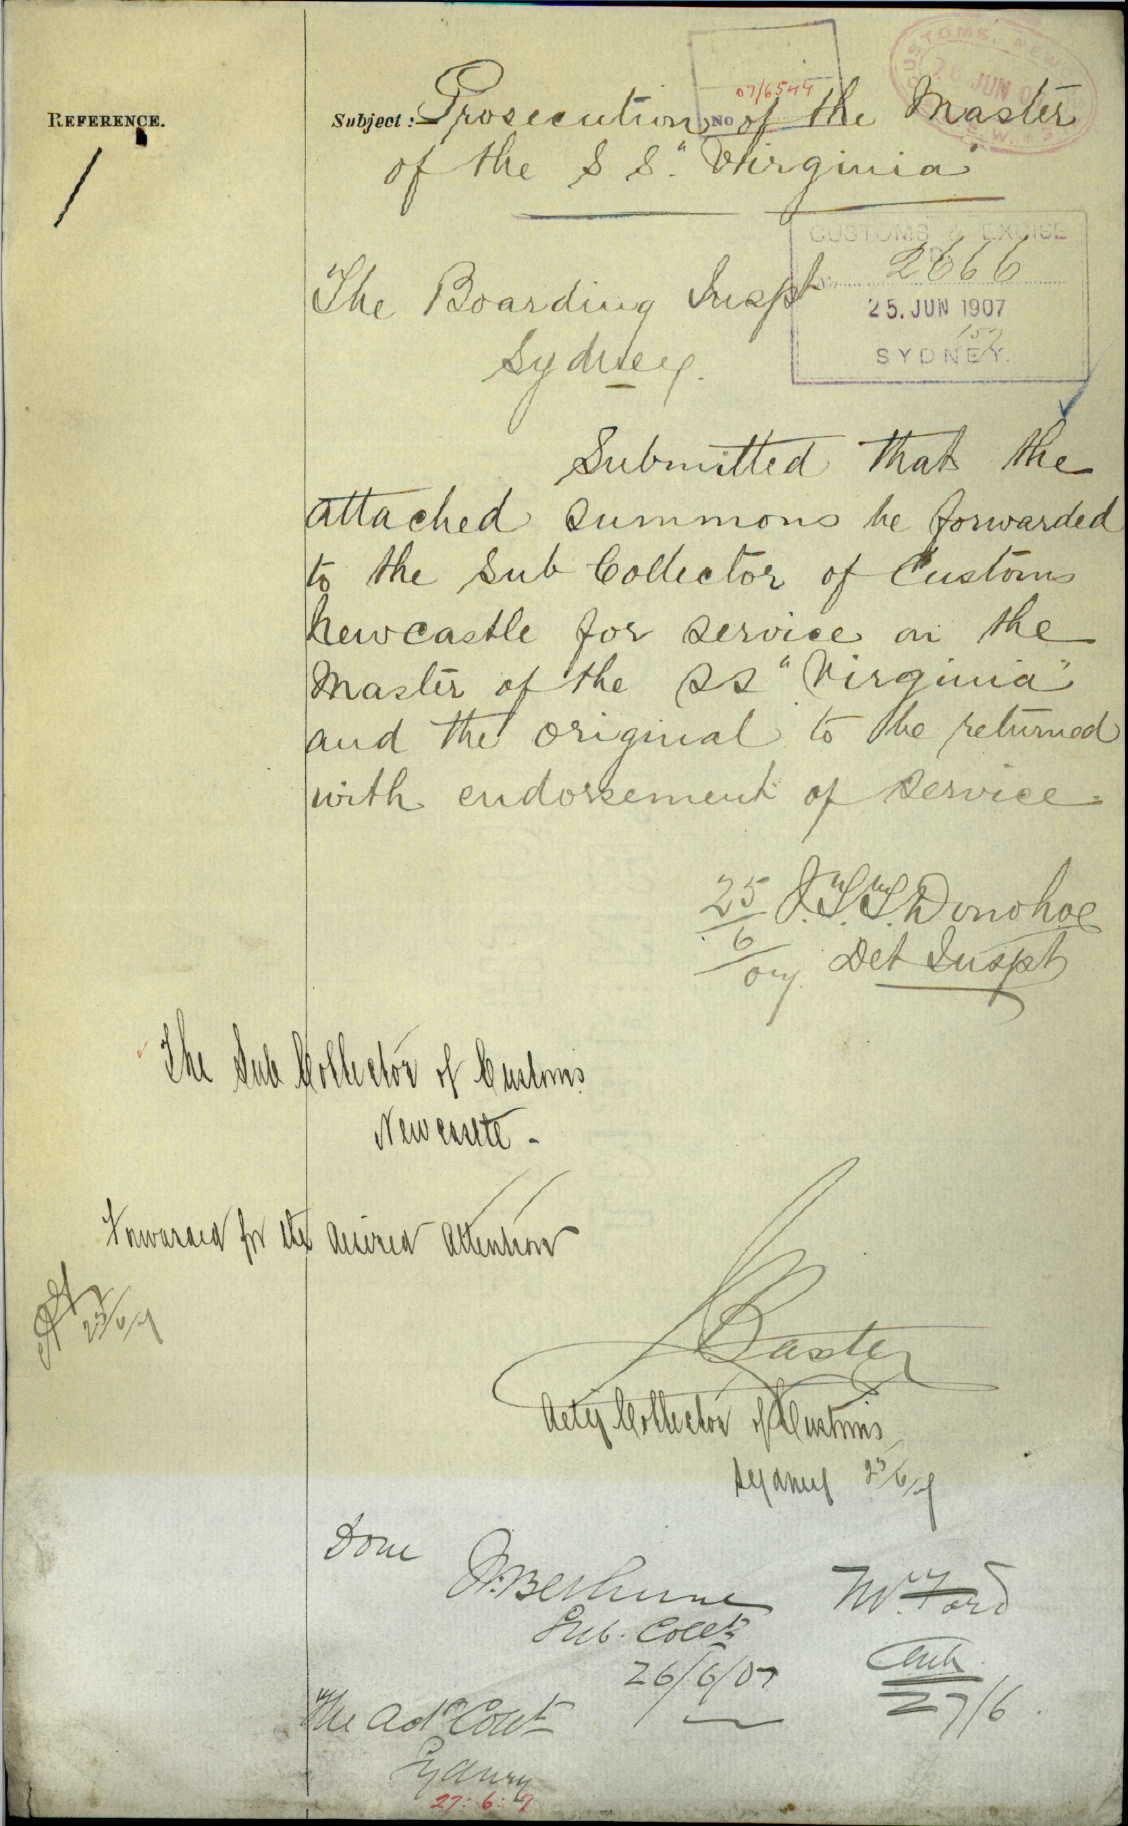 REFERENCE.
Subject:— Prosecution of the Master
of the S S. "Virginia"
No 07/6549
CUSTOMS, NEW
26 JUN 0
N.S.W.
CUSTOMS & EXCISE
No 2666
25. JUN 1907
SYDNEY.
The Boarding Inspt
Sydney.
Submitted that the
attached summons be forwarded
to the Sub Collector of Customs
Newcastle for service on the
Master of the SS "Virginia"
and the original to be returned
with endorsement of service.
25/6/07 Donohoe
Det Inspt
The Sub Collector of Customs
Newcastle -
Forwarded for the desired attention
25/6/7
Baxter
Actg Collector of Customs
Sydney 25/6/7
Done
Sub. Collr
26/6/07
Mr. Ford
27/6
The Collr
Sydney
27: 6: 7